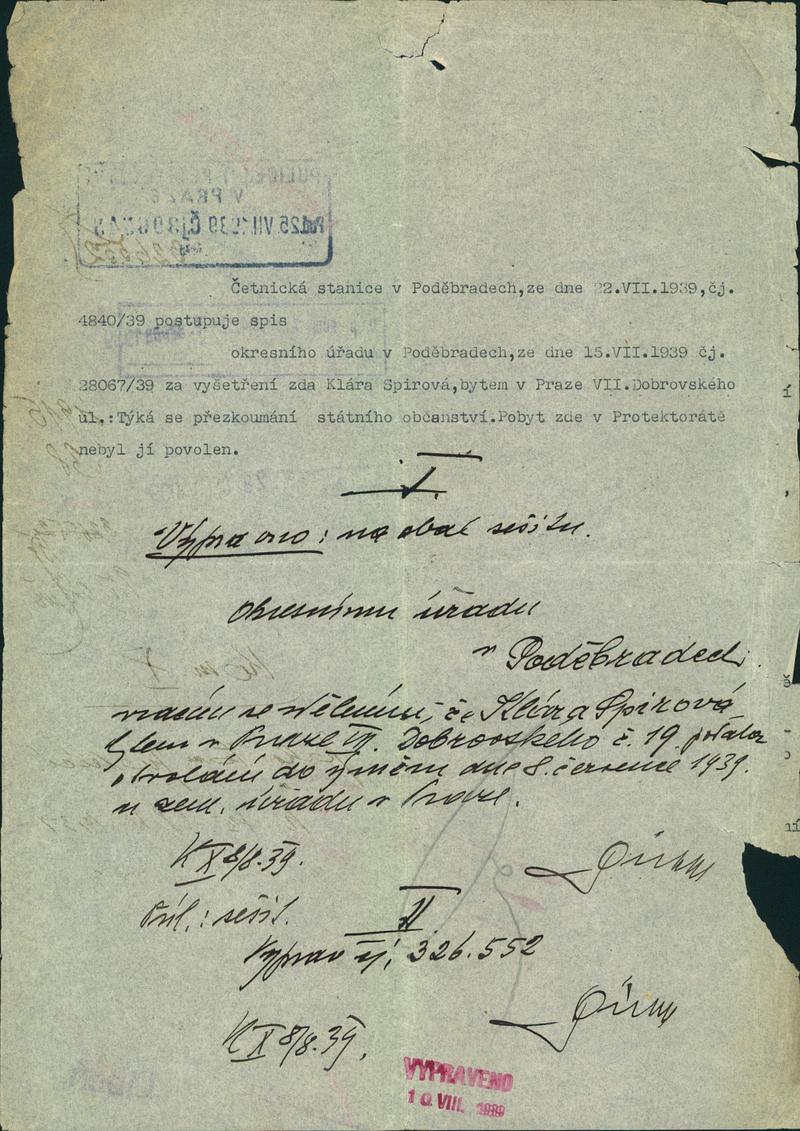 Četnická stanice v Poděbradech,ze dne 22.VII.1939,čj.
4840/39 postupuje spis
okresního úřadu v Poděbradech,ze dne 15.VII.1939 čj.
28067/39 za vyšetření zda Klára Spirová,bytem v Praze VII.Dobrovského
ul.:Týká se přezkoumání státního občanství.Pobyt zde v Protektorátě
nebyl jí povolen.
I.
Vypraveno: na obal sešitu.
Okresnímu úřadu
v Poděbradech.
vracím se sdělením, že Klára Spirová
bytem v Praze VII. Dobrovského č. 19
odvolání do dne 8. července 1939.
u zem. úřadu v Praze.
K X 8/8.39.
Příl.: sešit.
II
Vyprav čj. 326.552
K X 8/8.39.
VYPRAVENO
10. VIII. 1939